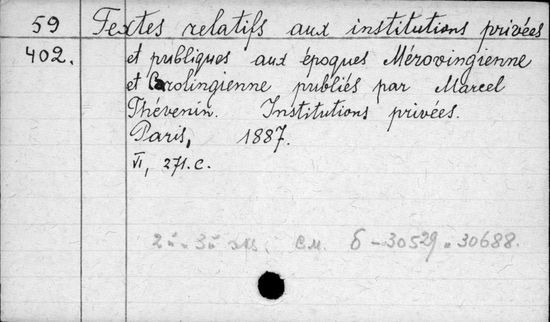 59 Textes relatifs aux institutions privées
402. et publiques aux époques Mérovingienne
et Carolingienne publiés par Marcel
Thévenin. Institutions privées.
Paris, 1887.
VI, 271.c.
2й и 3й экз. см. б-30529 и 30688.